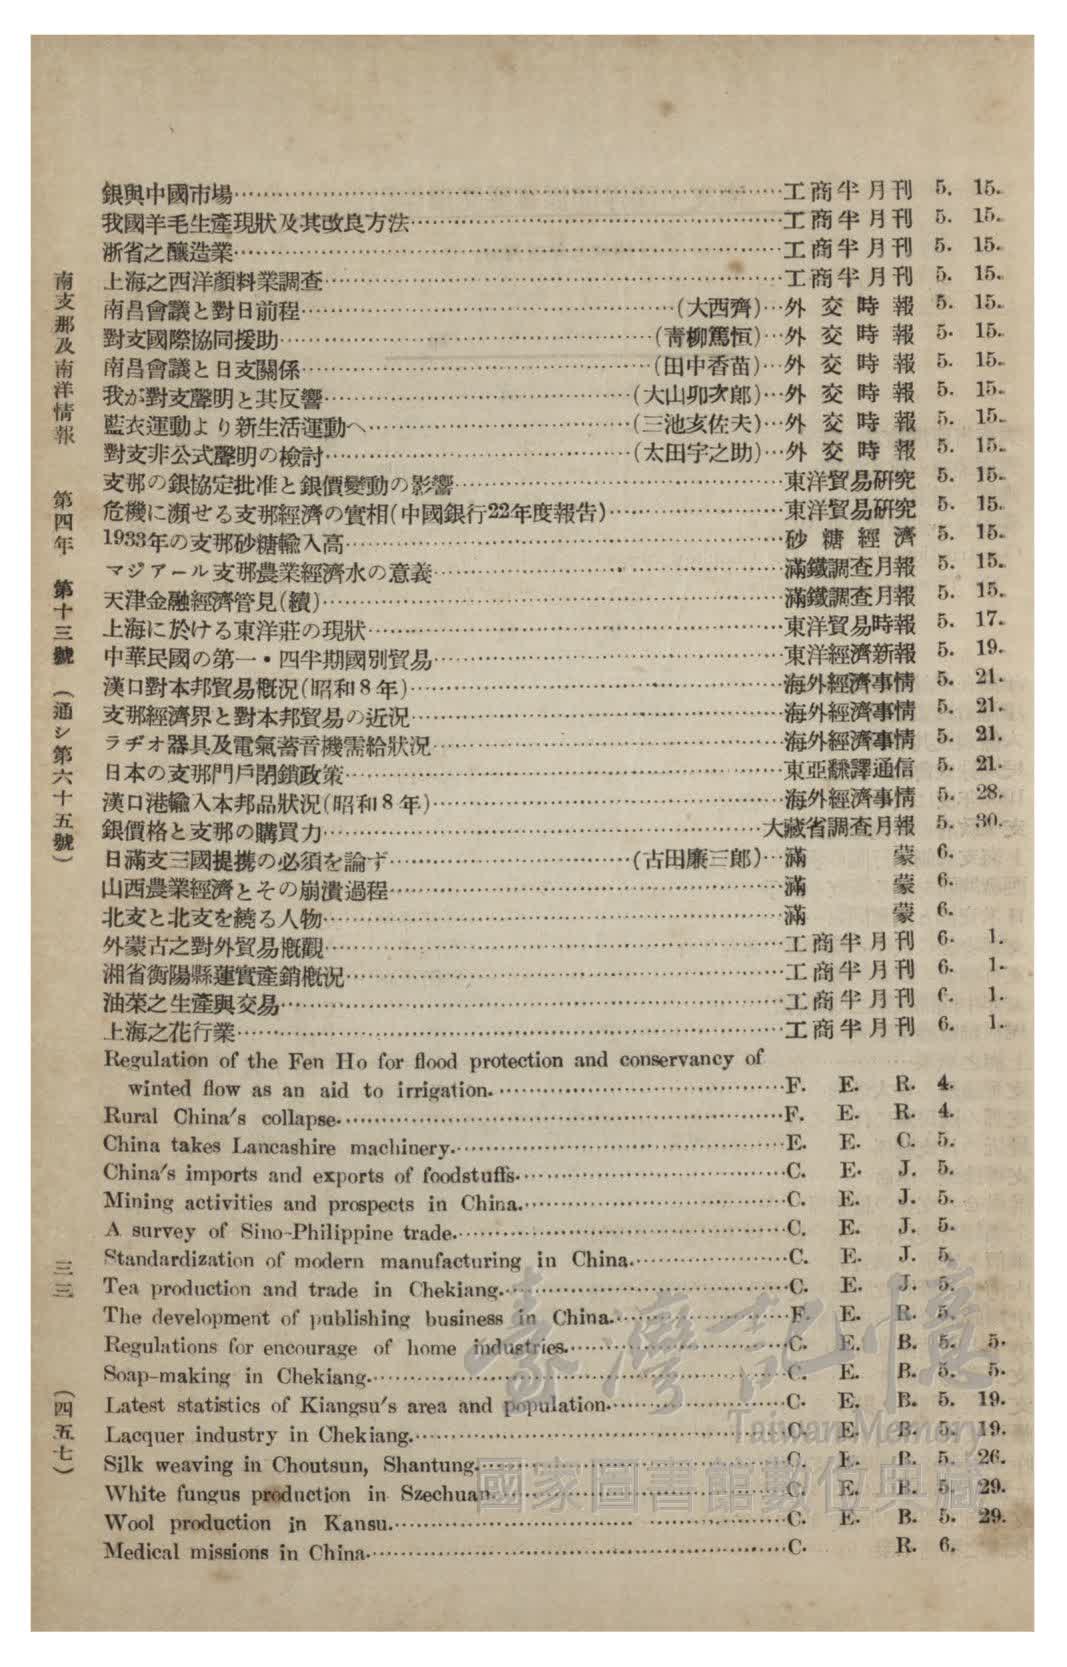 銀與中國市場……工商半月刊 5. 15.
我國羊毛生產現狀及其改良方法……工商半月刊 5. 15.
浙省之釀造業……工商半月刊 5. 15.
上海之西洋顏料業調査……工商半月刊 5. 15.
南昌會議と對日前程……(大西齊)…外交時報 5. 15.
對支國際協同援助……(靑柳篤恒)…外交時報 5. 15.
南昌會議と日支關係……(田中香苗)…外交時報 5. 15.
我が對支聲明と其反響……(大山卯次郎)…外交時報 5. 15.
藍衣運動より新生活運動へ……(三池亥佐夫)…外交時報 5. 15.
對支非公式聲明の檢討……(太田宇之助)…外交時報 5. 15.
支那の銀協定批准と銀價變動の影響……東洋貿易硏究 5. 15.
危機に瀕せる支那經濟の實相(中國銀行22年度報告)……東洋貿易硏究 5. 15.
1933年の支那砂糖輸入高……砂糖經濟 5. 15.
マジアール支那農業經濟水の意義……滿鐵調査月報 5. 15.
天津金融經濟管見(續)……滿鐵調査月報 5. 15.
上海に於ける東洋莊の現狀……東洋貿易時報 5. 17.
中華民國の第一・四半期國別貿易……東洋經濟新報 5. 19.
漢口對本邦貿易槪況(昭和8年)……海外經濟事情 5. 21.
支那經濟界と對本邦貿易の近況……海外經濟事情 5. 21.
ラヂオ器具及電氣蓄音機需給狀況……海外經濟事情 5. 21.
日本の支那門戶閉鎖政策……東亞飜譯通信 5. 21.
漢口港輸入本邦品狀況(昭和8年)……海外經濟事情 5. 28.
銀價格と支那の購買力……大藏省調査月報 5. 30.
日滿支三國提携の必須を論ず……(古田廉三郎)…滿蒙 6.
山西農業經濟とその崩潰過程……滿蒙 6.
北支と北支を繞る人物……滿蒙 6.
外蒙古之對外貿易槪觀……工商半月刊 6. 1.
湘省衡陽縣蓮實產銷槪況……工商半月刊 6. 1.
油菜之生產與交易……工商半月刊 6. 1.
上海之花行業……工商半月刊 6. 1.
Regulation of the Fen Ho for flood protection and conservancy of
winted flow as an aid to irrigation.……F. E. R. 4.
Rural China's collapse.……F. E. R. 4.
China takes Lancashire machinery.……E. E. C. 5.
China's imports and exports of foodstuffs.……C. E. J. 5.
Mining activities and prospects in China.……C. E. J. 5.
A survey of Sino-Philippine trade.……C. E. J. 5.
Standardization of modern manufacturing in China.……C. E. J. 5.
Tea production and trade in Chekiang.……C. E. J. 5.
The development of publishing business in China.……F. E. R. 5.
Regulations for encourage of home industries.……C. E. B. 5. 5.
Soap-making in Chekiang.……C. E. B. 5. 5.
Latest statistics of Kiangsu's area and population.……C. E. B. 5. 19.
Lacquer industry in Chekiang.……C. E. B. 5. 19.
Silk weaving in Choutsun, Shantung.……C. E. B. 5. 26.
White fungus production in Szechuan.……C. E. B. 5. 29.
Wool production in Kansu.……C. E. B. 5. 29.
Medical missions in China.……C. R. 6.
南支那及南洋情報 第四年 第十三號 (通シ第六十五號) 三三 (四五七)
臺灣記憶
Taiwan Memory
國家圖書館數位典藏